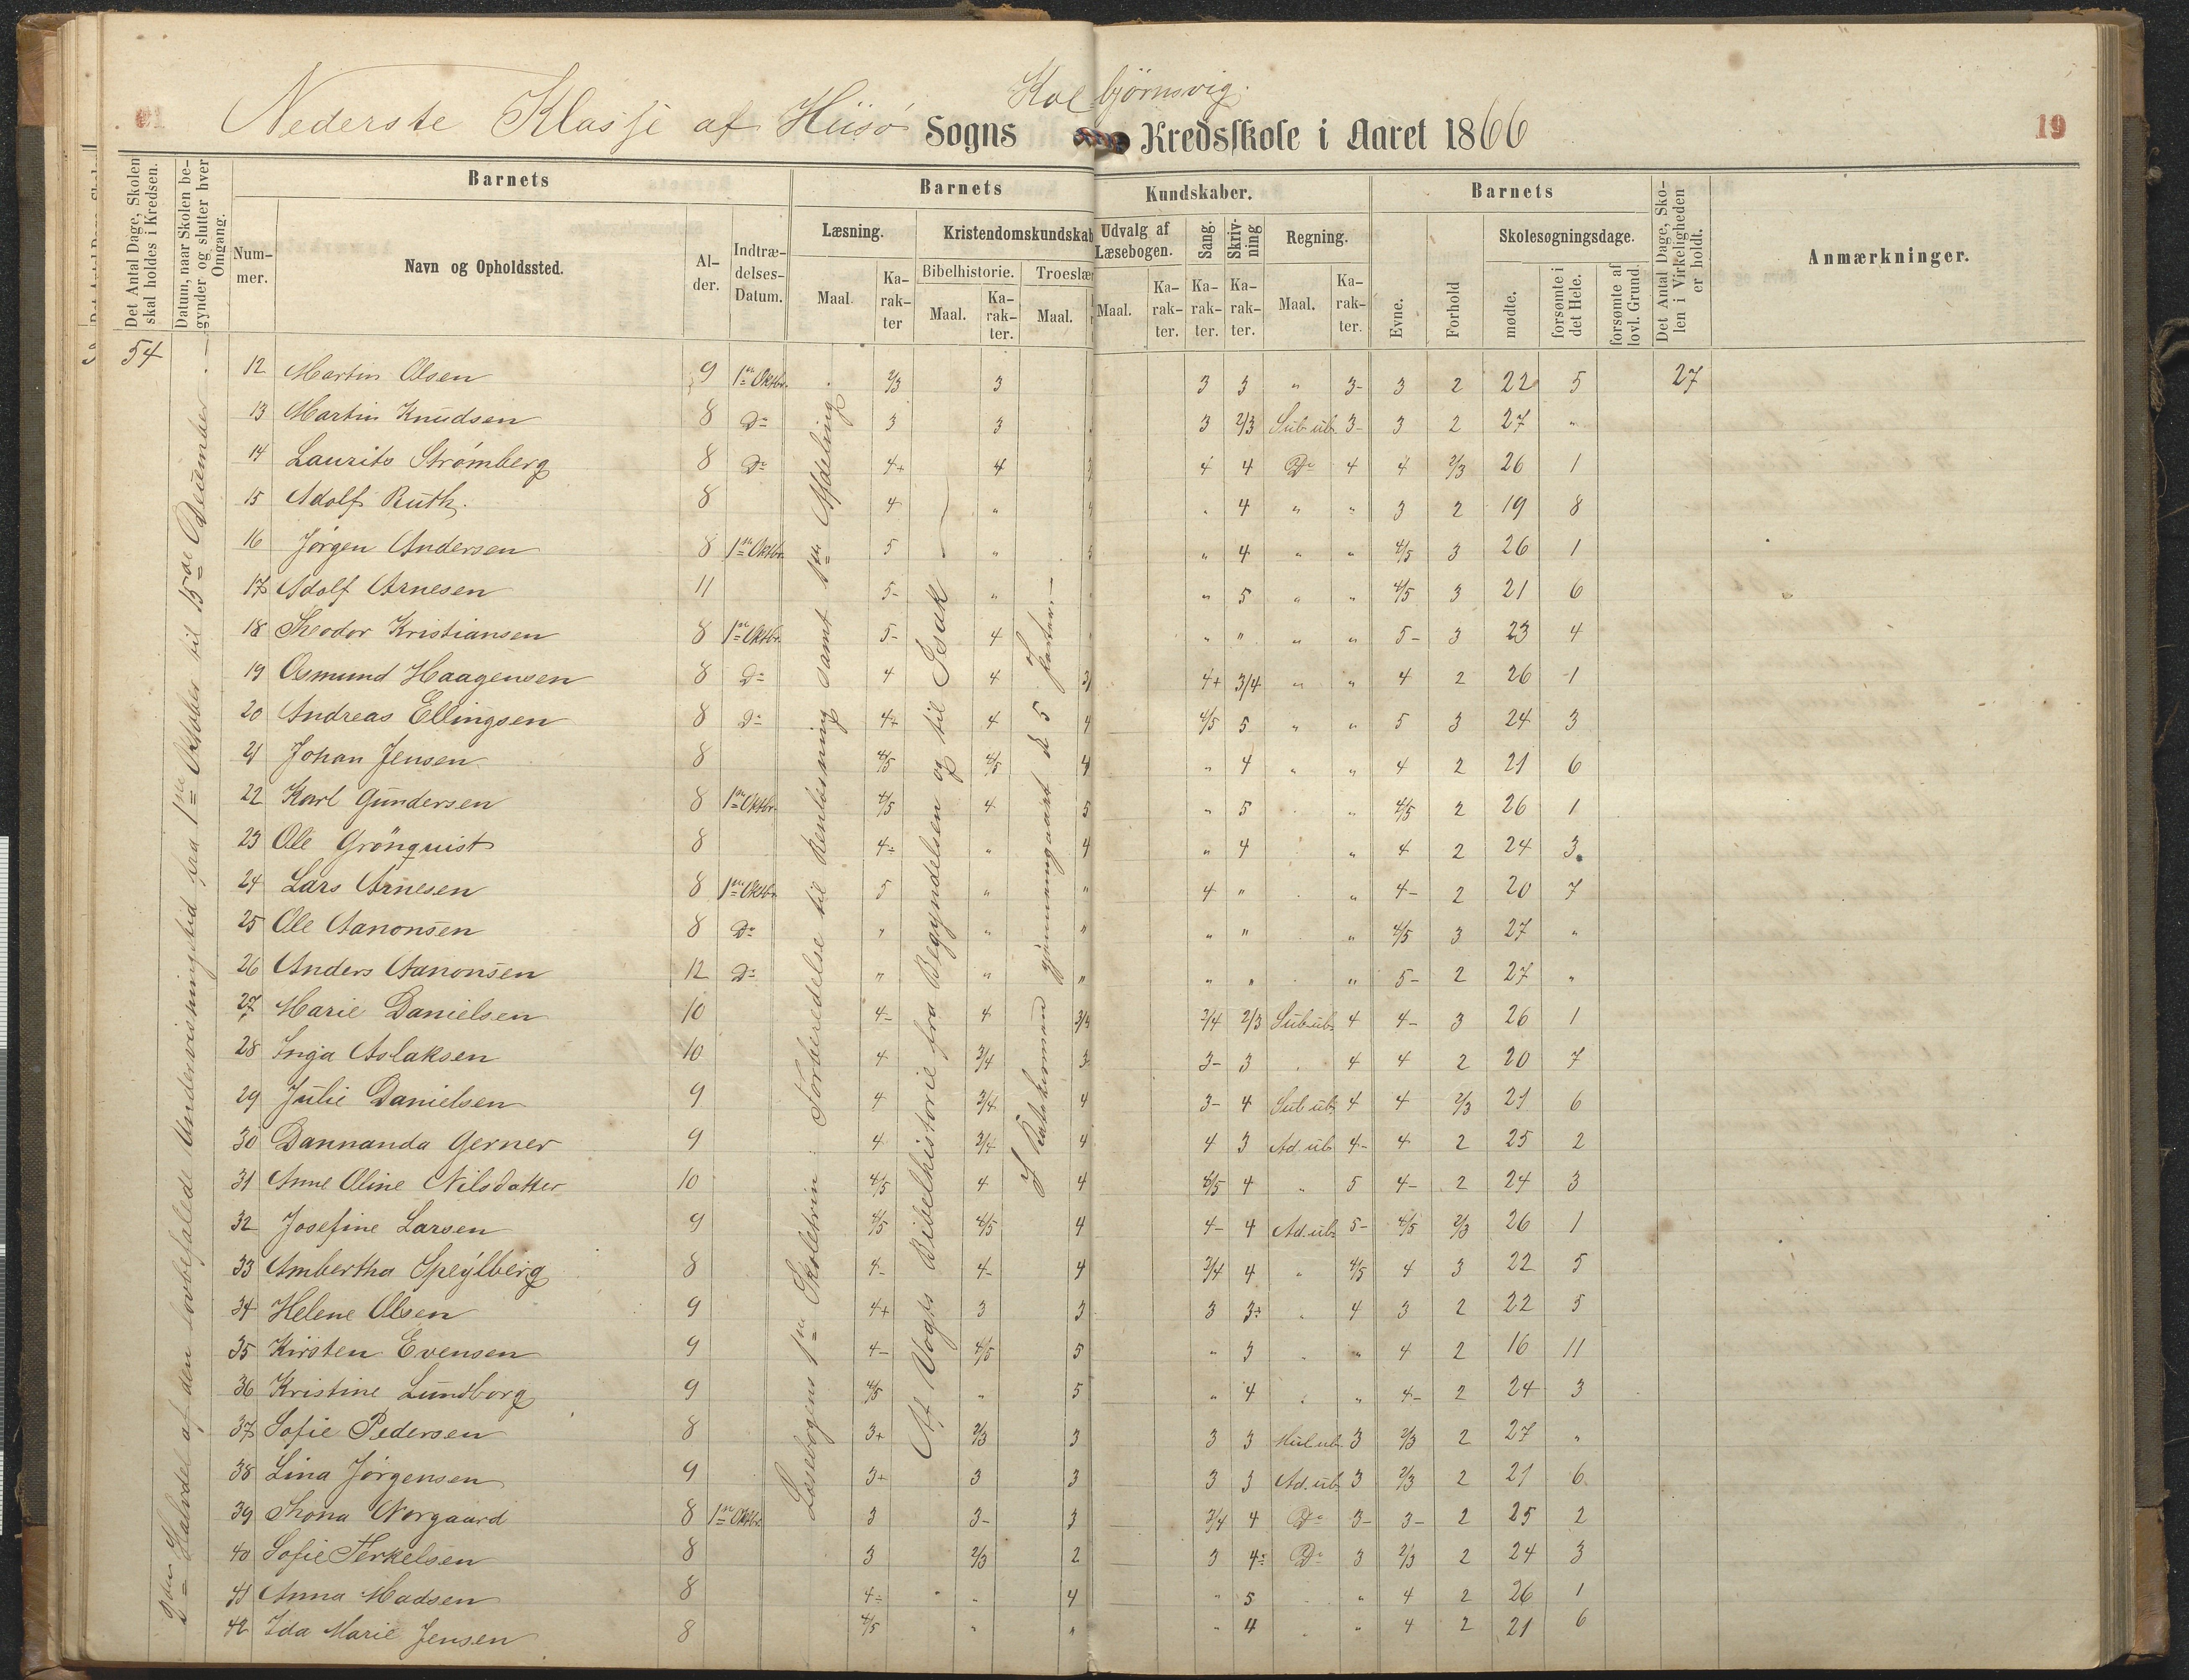 Kolbjørnsvig.
Nederste Klasse af Hisø Sogns Kredsskole i Aaret 1866
19
Det Antal Dage, Skolen skal holdes i Kredsen.
Datum, naar Skolen begynder og slutter hver Omgang.
Barnets
Nummer.
Navn og Opholdssted.
Alder.
Indtrædelses-Datum.
Barnets Kundskaber.
Læsning.
Maal.
Karakter
Kristendomskundskab
Bibelhistorie.
Maal.
Karakter.
Troeslær
Maal.
Udvalg af Læsebogen.
Maal.
Karakter.
Sang.
Karakter.
Skrivning
Karakter.
Regning.
Maal.
Karakter.
Barnets
Evne.
Forhold
Skolesøgningsdage.
mødte.
forsømte i det Hele.
forsømte af lovl. Grund.
Det Antal Dage, Skolen i Virkeligheden er holdt.
Anmærkninger.
54
2den Halvdel af den lovbefalede Undervisningstid fra 1ste Oktober til 15de December.
Læsebogens 1ste Skoletrin: Forberedelse til Renlæsning samt 1ste Afdeling
Af Vogts Bibelhistorie fra Begyndelsen og til Isak
I Katekismen gjennemgaaet de 5 Parter.
12 Martin Olsen 9 1ste Oktbr. 2/3 3 3 3 " 3- 3 2 22 5 27
13 Martin Knudsen 8 Do 3 3 3 2/3 Sub.ub. 3- 3 2 27 "
14 Laurits Strømberg 8 Do 4+ 4 3 4 4 Do 4 4 2/3 26 1
15 Adolf Ruth. 8 4 " 4 " 4 " " 3 2 19 8
16 Jørgen Andersen 8 1ste Oktbr. 5 " 5 " 4 " " 4/5 3 26 1
17 Adolf Arnesen 11 5- " " " 5 " " 4/5 3 21 6
18 Theodor Kristiansen 8 1ste Oktbr. 5- 4 " " " " " 5- 3 23 4
19 Osmund Haagensen 8 Do 4 4 3/ 4+ 3/4 " " 4 2 26 1
20 Andreas Ellingsen 8 Do 4+ 4 4 4/5 5 " " 5 3 24 3
21 Johan Jensen 8 4/5 4/5 4 " 4 " " 4 2 21 6
22 Karl Gundersen 8 1ste Oktbr. 4/5 4 5 " 5 " 4/5 2 26 1
23 Ole Grönquist 8 4- " 4 " 4 " 4 2 24 3
24 Lars Arnesen 8 1ste Oktbr. 5 " " 4 " " 4- 2 20 7
25 Ole Aanonsen 8 Do " " " " " " 4/5 3 27 "
26 Anders Aanonsen 12 Do " " " " " " 5- 2 27 "
27 Marie Danielsen 10 4- 4 3/4 3/4 2/3 Sub.ub. 4 4- 3 26 1
28 Inga Aslaksen 10 4 3/4 3 3- 3 4 4 2 20 7
29 Julie Danielsen 9 4 3/4 4 3- 4 Sub.ub. 4 4 2/3 21 6
30 Dannanda Gerner 9 4 3/4 4 4 3 Ad.ub. 4- 4 2 25 2
31 Anne Oline Nilsdatter 10 4/5 4 4 4/5 4 " 5 4- 2 24 3
32 Josefine Larsen 9 4/5 4/5 4 4- 4 Ad.ub. 5- 4/5 2/3 26 1
33 Ambertha Speylberg 8 4- 4- 4 3/4 4 " 4/5 4 3 22 5
34 Helene Olsen 9 4+ 3 3 3 3+ 4 3 2 22 5
35 Kirsten Evensen 9 4- 4/5 5 " 3 " 4 2 16 11
36 Kristine Lundborg 9 4/5 " 5 " 4 " 4- 2 24 3
37 Sofie Pedersen 8 3+ 2/3 3 3 3 Mul.ub. 3 2/3 2 27 "
38 Lina Jørgensen 9 3+ 3 3 3 3 Ad.ub. 3 2/3 2 21 6
39 Thona Norgaard 8 1ste Oktbr. 3 3- 3 3/4 4 Do 3- 3- 2 25 2
40 Sofie Terkelsen 8 3 2/3 2 3 4- Do 3 2/3 2 24 3
41 Anna Madsen 8 4- " 4 " 5 " 4 2 26 1
42 Ida Marie Jensen 8 4/5 " " " 4 " 4 2 21 6